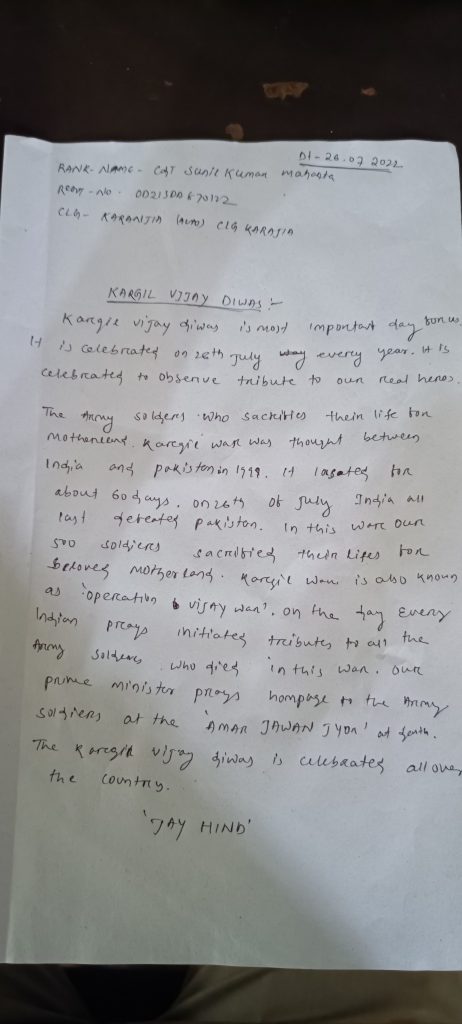 Dt-26.07.2022
RANK-NAME - CDT Sunil Kumar Mahanta
REGT-NO. OD21SDA670122
CLG- KARANJIA (AUTO) CLG KARAJIA
KARGIL VIJAY DIWAS:-
Kargil vijay diwas is most important day for us.
It is celebrated on 26th July every year. It is
celebrated to observe tribute to our real heros.
The Army solders who sacrifies their life for
motherland. Kargil war was thought between
India and pakistan in 1999. It lasated for
about 60 days. on 26th of July India all
last defeated pakistan. In this ware our
500 soldiers sacrified their lifes for
beloved Motherland. Kargil war is also known
as 'operation vijay war'. on the day every
Indian prays initiated tributes to all the
Army solders who died in this war. our
prime minister prays hompage to the Army
soldiers at the 'AMAR JAWAN JYOR' at
The Kargil vijay diwas is celebrated all over
the country.
'JAY HIND'